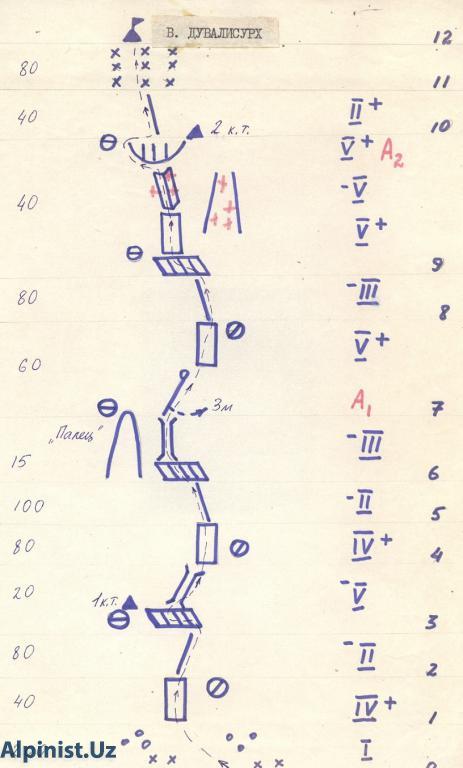 В. ДУВАЛИСУРХ
12
80
11
40 II+
10
2 к.т. V+ A2
40 -V
V+
9
80 -III
8
60 V+
A1 7
3м
„Палец"
15 -III
6
100 -II 5
80 IV+ 4
20 -V
1к.т.
3
80 -II 2
40 IV+ 1
Alpinist.Uz I
0